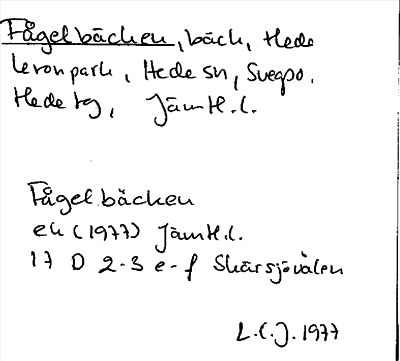 Fågelbäcken, bäck, Hede
kronopark, Hede sn, Svegs
Hede tg, Jämtl. l.
Fågelbäcken
ek (1977) Jämtl. l.
17 D 2-3 e-f Skärsjövålen
L.C.J. 1977